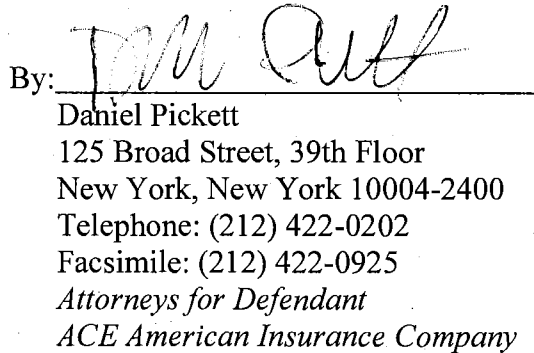 By:
Daniel Pickett
125 Broad Street, 39th Floor
New York, New York 10004-2400
Telephone: (212) 422-0202
Facsimile: (212) 422-0925
Attorneys for Defendant
ACE American Insurance Company